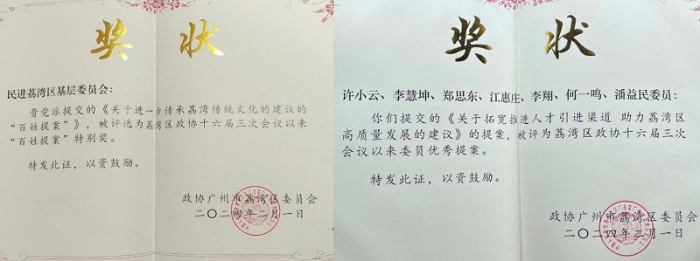 奖状
民进荔湾区基层委员会：
贵党派提交的《关于进一步传承荔湾传统文化的建议的
“百姓提案”》，被评选为荔湾区政协十六届三次会议以来
“百姓提案”特别奖。
特发此证，以资鼓励。
政协广州市荔湾区委员会
二〇二四年二月一日
奖状
许小云、李慧坤、郑思东、江惠庄、李翔、何一鸣、潘益民委员：
你们提交的《关于拓宽推进人才引进渠道 助力荔湾区
高质量发展的建议》的提案，被评为荔湾区政协十六届三次
会议以来委员优秀提案。
特发此证，以资鼓励。
政协广州市荔湾区委员会
二〇二四年二月一日